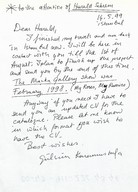 to the attention of Harald Szeemann
16.5.99
Istanbul
Dear Harald,
I finished my travels and now I am
in Istanbul until I will be here in
contact with you till the 1st of
August. I plan to finish up the project
and send you by the end of this time.
The Manka Gallery show was
February 1998. (My Karen, My Karma)
Hoping if you need I have to
send you an updated CV for the
catalogue. Please let me know
in which format you wish to
have the C.V.
Best wishes
Gülsün Karamustafa